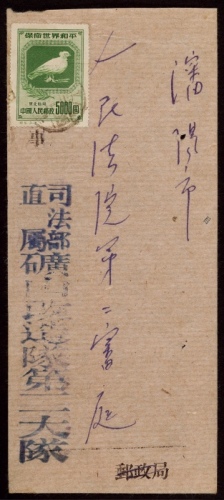 瀋陽市
人民法院第二審庭
保衛世界和平
中國人民郵政 5000圓
事
司法部廣
直屬
隊第二大隊
郵政局